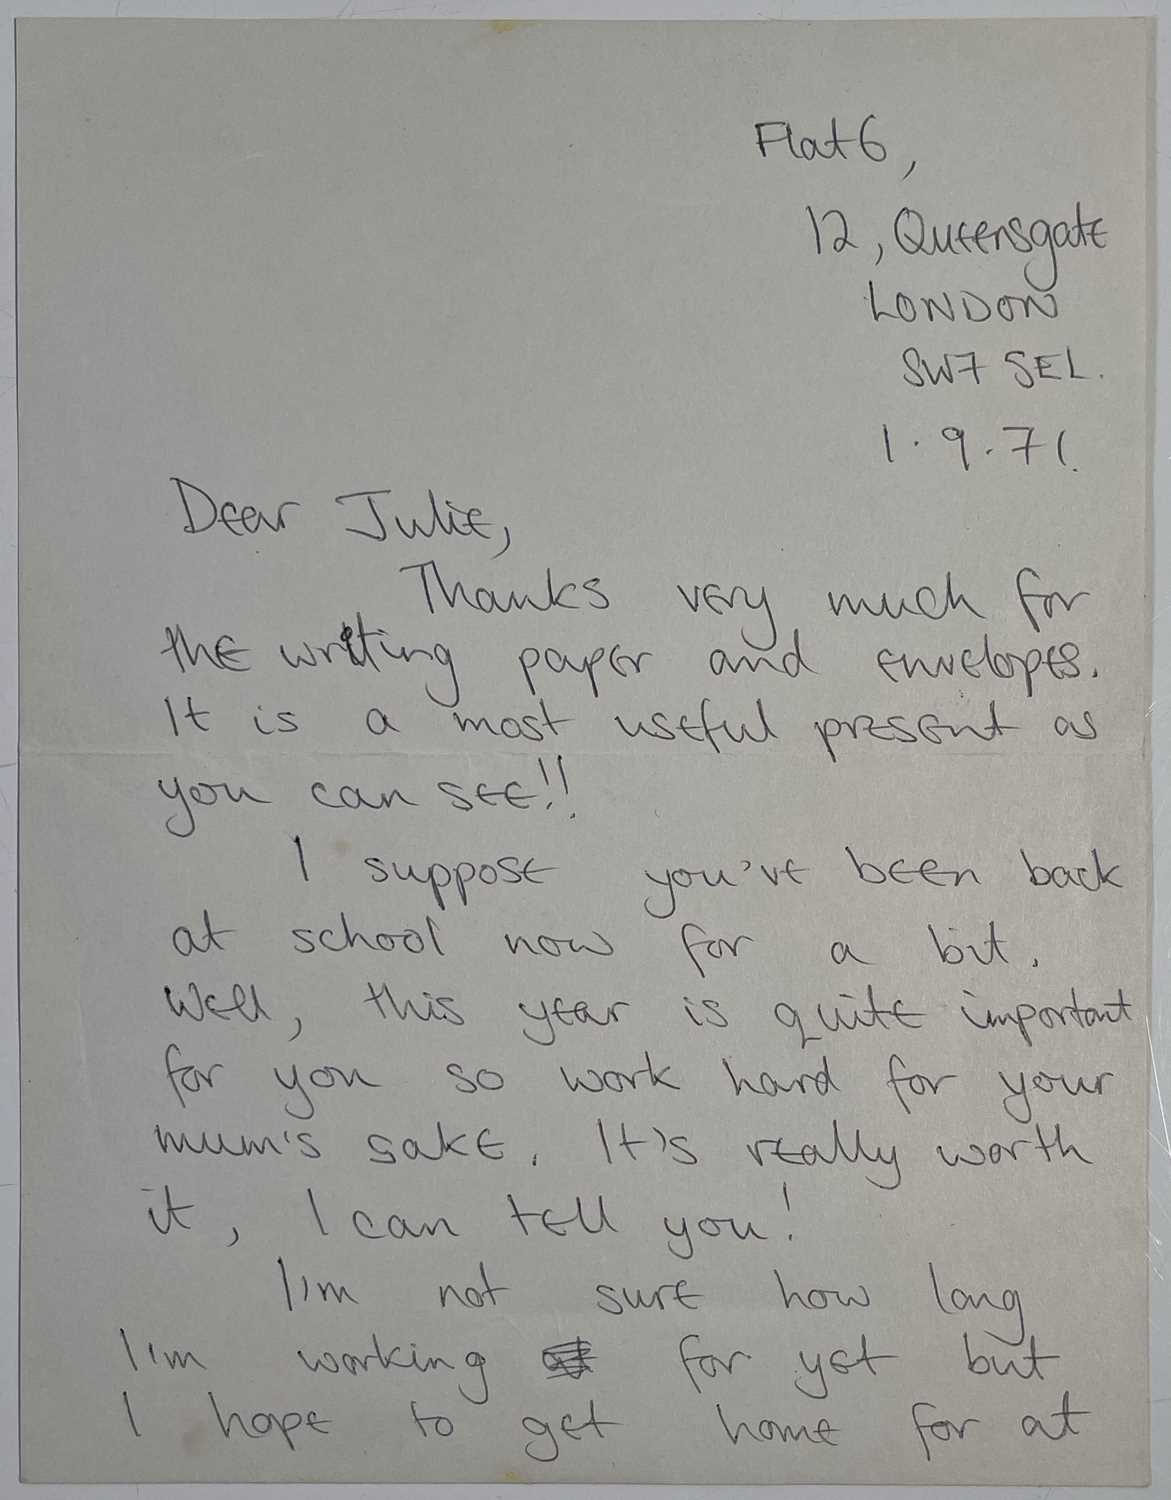 Flat 6,
12, Queensgate
LONDON
SW7 5EL.
1.9.71.
Dear Julie,
Thanks very much for
the writing paper and envelopes.
It is a most useful present as
you can see!!
I suppose you've been back
at school now for a bit.
Well, this year is quite important
for you so work hard for your
mum's sake. It's really worth
it, I can tell you!
I'm not sure how long
I'm working for yet but
I hope to get home for at